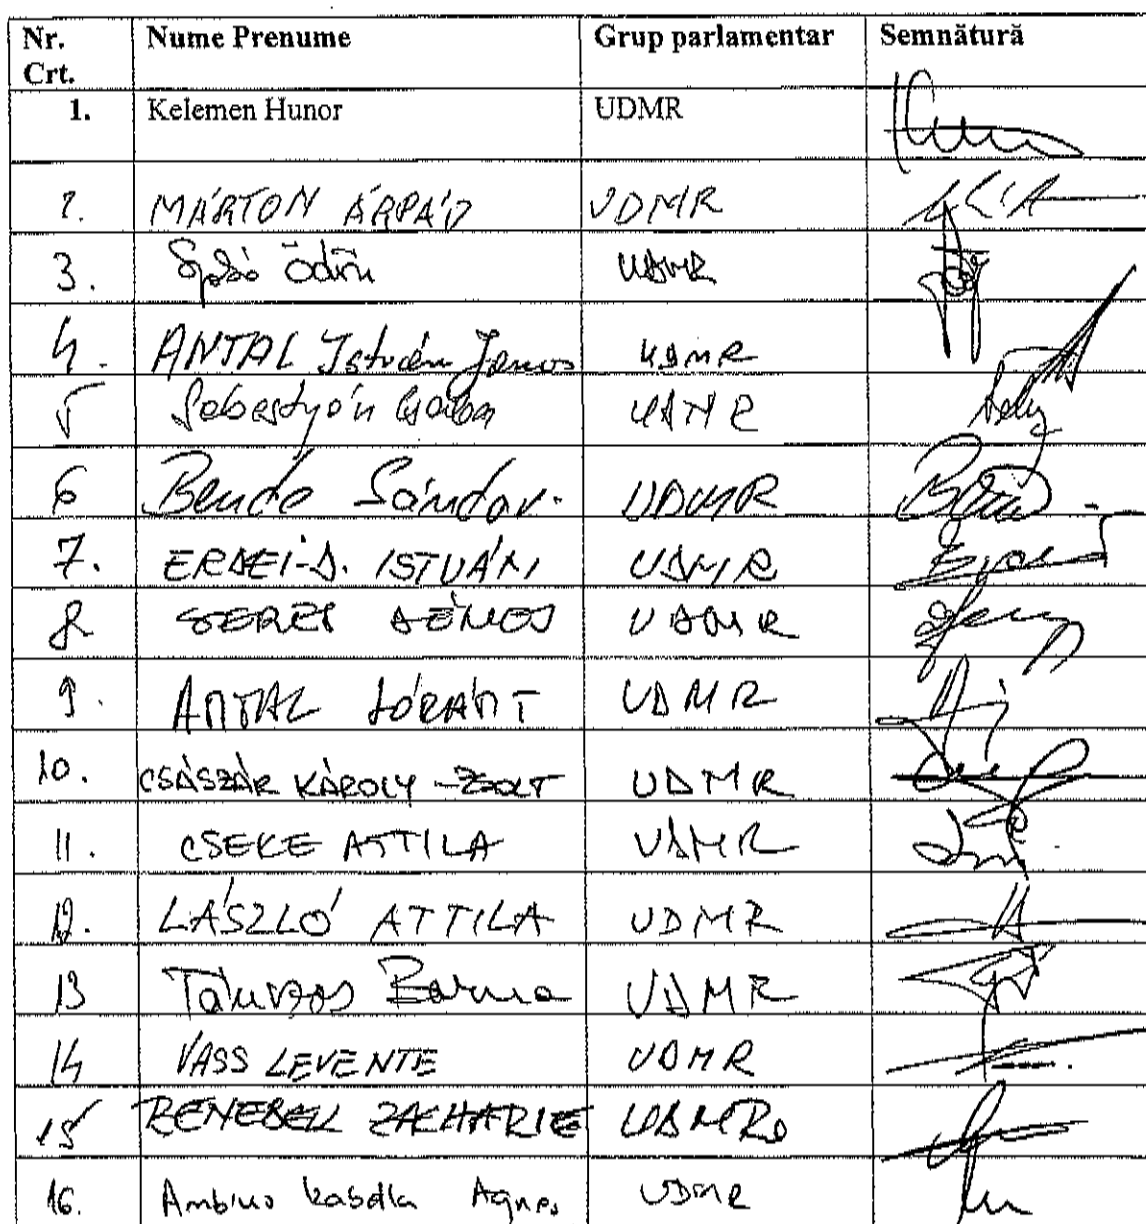 Nr. Crt. Nume Prenume Grup parlamentar Semnătură
1. Kelemen Hunor UDMR
2. MÁRTON ÁRPÁD UDMR
3. Szabó Ödön UDMR
4. ANTAL István János UDMR
5 Sebestyén Csaba UDMR
6 Bende Sándor. UDMR
7. ERDEI-D. ISTVÁN UDMR
8 SZERES DÉNES UDMR
9. ANTAL LÓRÁNT UDMR
10. CSÁSZÁR KÁROLY-ZSOLT UDMR
11. CSEKE ATTILA UDMR
12. LÁSZLÓ ATTILA UDMR
13 Tánczos Barna UDMR
14 VASS LEVENTE UDMR
15 BENEDEK ZACHARIE UDMR
16. Ambrus Izabella Agnes UDMR